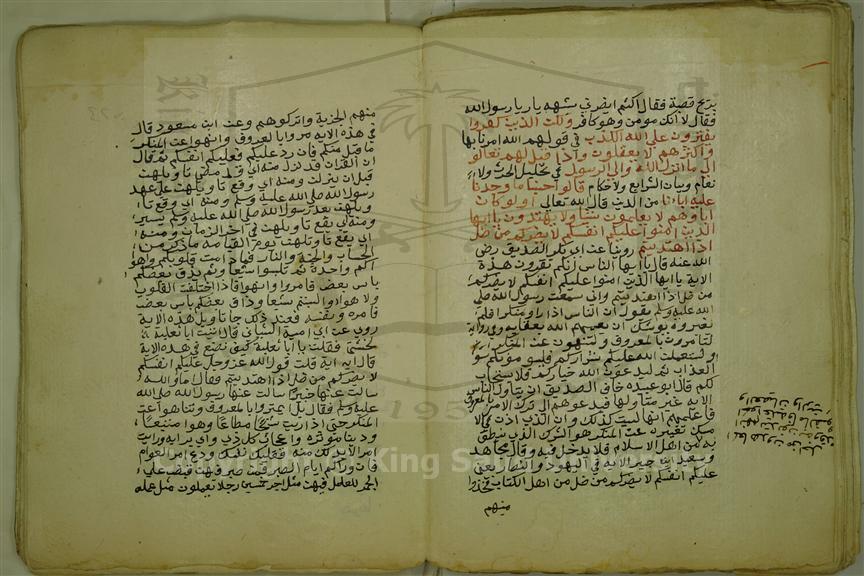 بريح قصبة فقال اكثم ايضرني شبهه يا رسول الله
فقال لا انك مومن وهو كافر ولكن الذين كفروا
يفترون على الله الكذب في قولهم الله امرنا بها
واكثرهم لا يعقلون واذا قيل لهم تعالو
الى ما انزل الله والى الرسول في تحليل الحرث والا
نعام وبيان الشرايع والاحكام قالوا حسبنا ما وجدنا
عليه اباءنا من الدين قال الله تعالى اولو كان
اباوهم لا يعلمون شيا ولا يهتدون يا ايها
الذين امنوا عليكم انفسكم لا يضركم من ضل
اذا اهتديتم روينا عن ابي بكر الصديق رضى
الله عنه قال يا ايها الناس انكم تقرون هذة
الاية يا ايها الذين امنوا عليكم انفسكم لا يضركم
من ضل اذا اهتديتم واني سمعت رسول الله صلى
الله عليه وسلم يقول ان الناس اذا راو منكرا فلم
يغيروه يوشك ان يعمهم الله بعقابه وفي رواية
لتامرون بالمعروف ولتنهون عن المنكر او
ليستعملن الله عليكم شراركم فليسومونكم سو
العذاب ثم ليدعون الله خياركم فلا يستجاب
لكم قال ابو عبيده خاف الصديق ان يتاول الناس
الاية غير متاولها فيدعوهم الى ترك الامر بالمعروف
فاعلمهم انها ليست كذلك وان الذي اذن في الا
مساك تغييره عن المنكر هو الشرك الذي ينطق
به من اهل الاسلام فلا يدخل فيه وقال مجاهد
وسعيد ابن جبير الاية في اليهود والنصارى يعني
عليكم انفسكم لا يضركم من ضل من اهل الكتاب فخذوا
منهم
منهم الجزية واتركوهم وعن ابن مسعود قال
في هذه الايه مروا بالمعروف وانهوا عن المنكر
ما قبل منكم فان رد عليكم فعليكم انفسكم ثم قال
ان القران قد نزل منه اي قد مضى تاويلهن
قبل ان ينزلن ومنه اي وقع تاويلهن على عهد
رسول الله صلى الله عليه وسلم ومنه اي وقع تا
ويلهن بعد رسول الله صلى الله عليه وسلم بيسير
ومنه اي يقع تاويلهن في اخر الزمان ومنه
اي يقع تاويلهن يوم القيامه ما ذكر من
الحساب والجنه والنار فما دامت قلوبكم واهوا
اكم واحدة ثم تلبسوا شيعا ولم يذق بعضكم
باس بعض فامروا وانهوا فاذا اختلفت القلوب
والاهواء والبستم شيعا وذاق بعضكم باس بعض
فامره ونفسه فعند ذلك جا تاويل هذه الاية
روي عن ابي امية الشيباني قال اتيت ابا ثعلبة
الخشني فقلت يا ابا ثعلبة كيف نصنع في هذه الاية
قال ايه اية قلت قول الله عز وجل عليكم انفسكم
لا يضركم من ضل اذا اهتديتم فقال اما والله
سالت عنها خبيرا سالت عنها رسول الله صلى الله
عليه وسلم فقال بل ايتمروا بالمعروف وتناهوا عن
المنكر حتى اذا رايت شحا مطاعا وهوا متبعا
ودنيا موثرة واعجاب كل ذي راي برايه ورايت
امرا لا بد لك منه فعليك نفسك ودع امر العوام
فان وراكم ايام الصبر فمن صبر فيهن قبض على
الجمر للعامل فيهن مثل اجر خمسين رجلا يعملون مثل عمله
King Saud University
1957